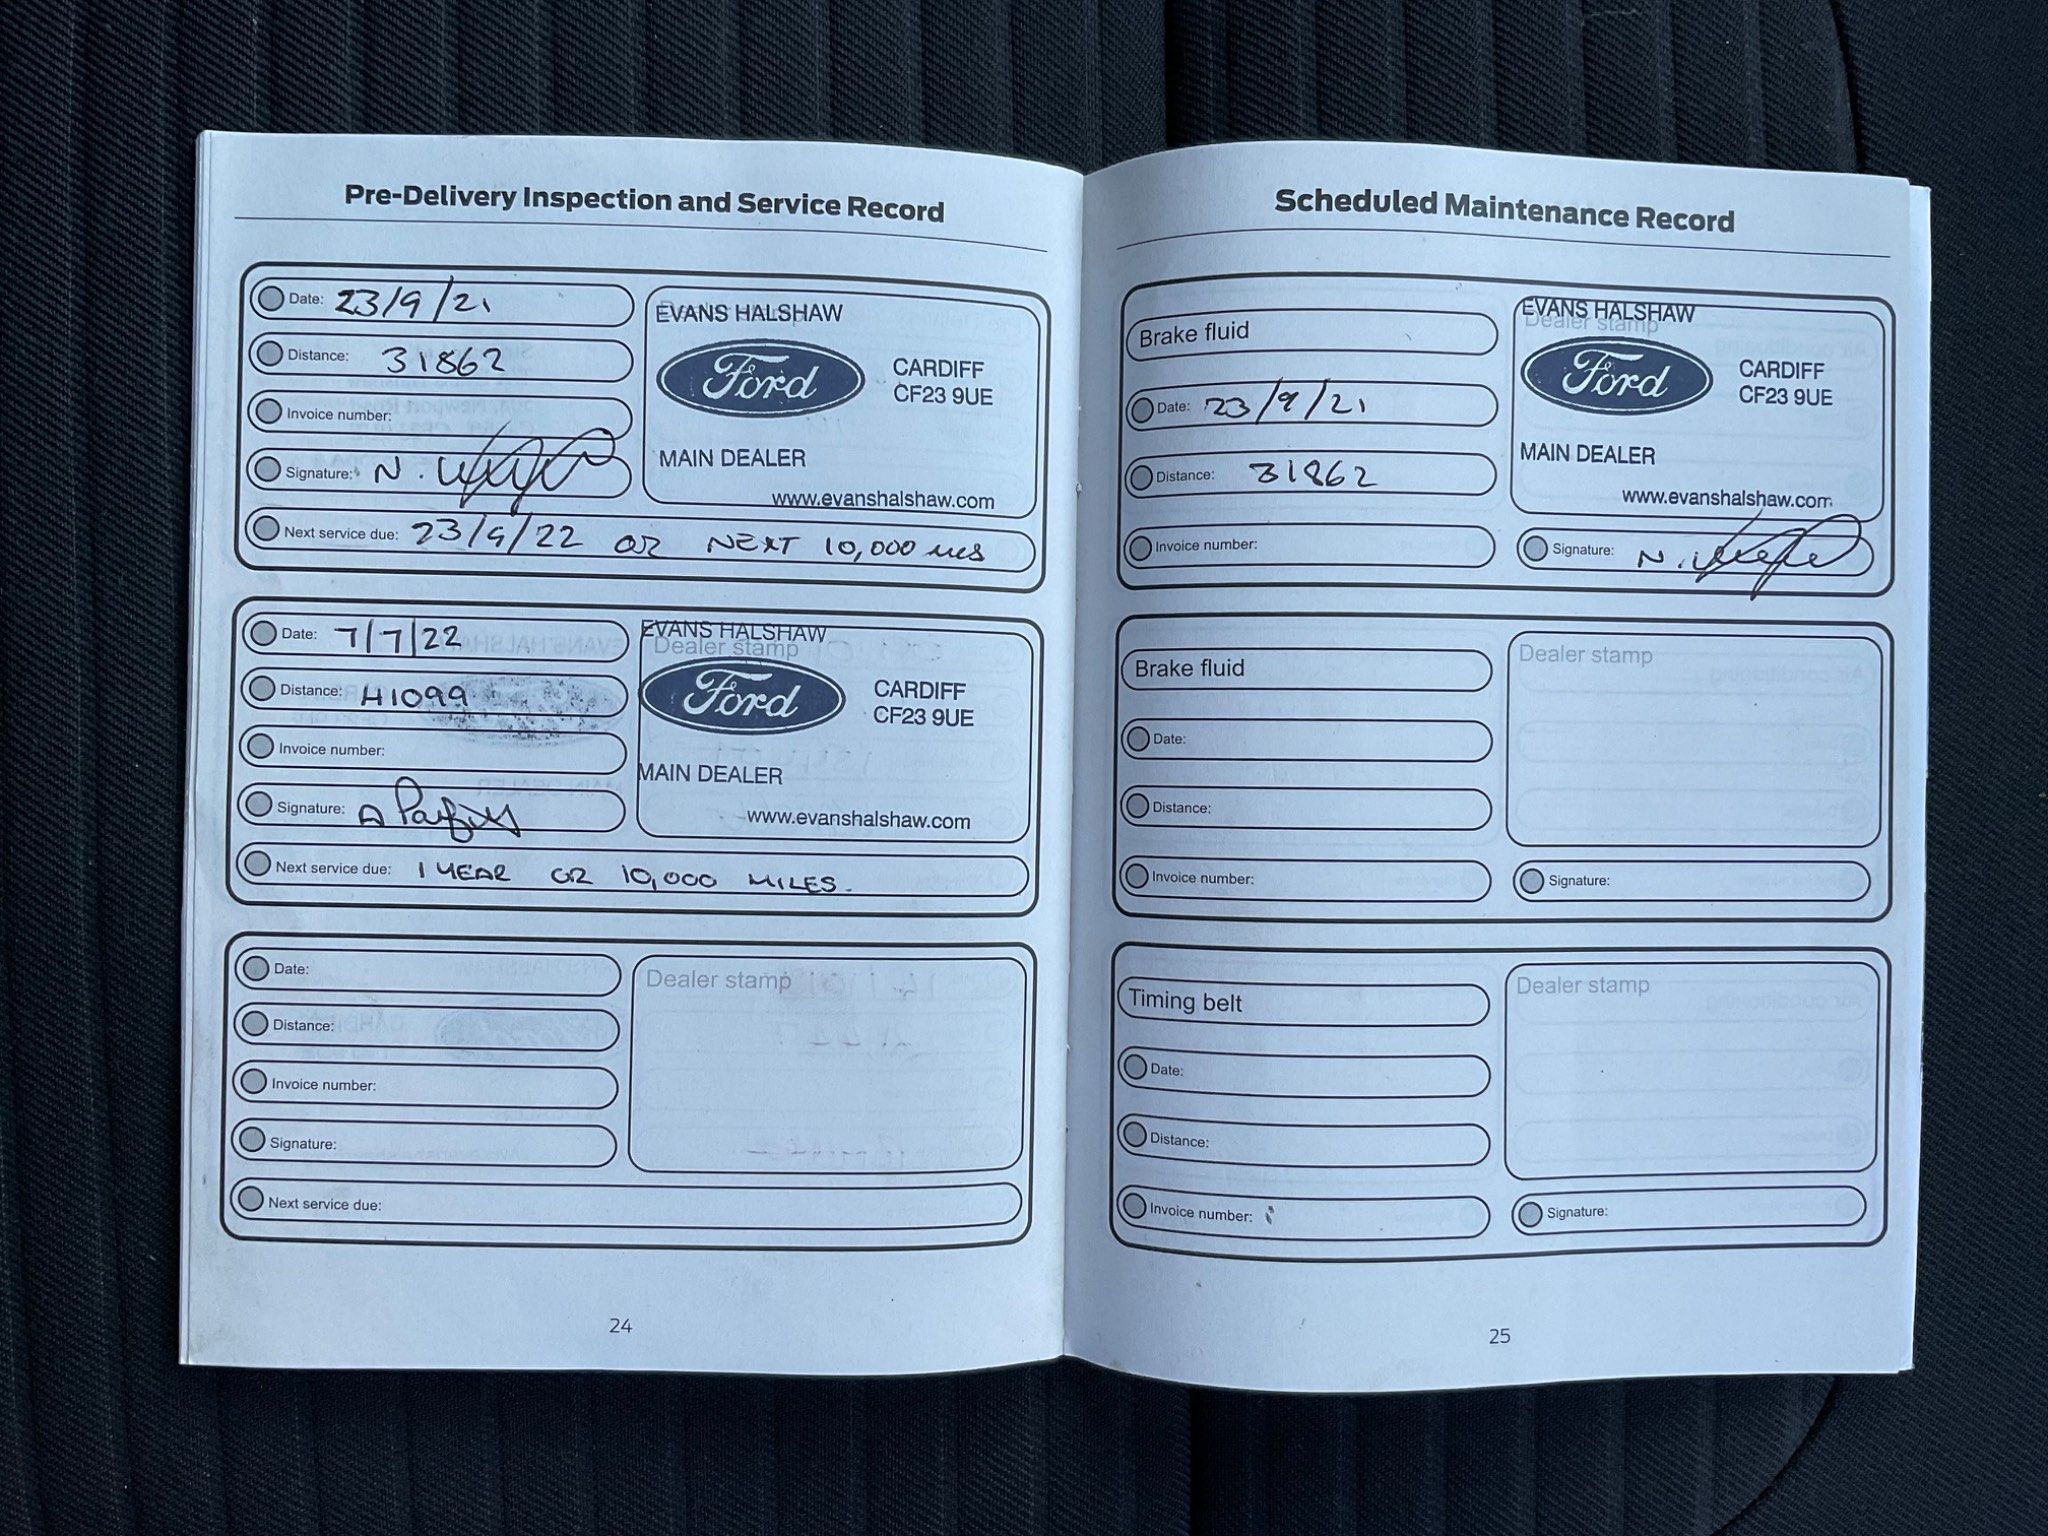 Pre-Delivery Inspection and Service Record
Date: 23/9/21
Distance: 31862
Invoice number:
Signature: N.
Next service due: 23/9/22 OR NEXT 10,000 MLS
EVANS HALSHAW
Ford
CARDIFF
CF23 9UE
MAIN DEALER
www.evanshalshaw.com
Date: 7/7/22
Distance: 41099
Invoice number:
Signature: A
Next service due: 1 YEAR OR 10,000 MILES.
EVANS HALSHAW
Dealer stamp
Ford
CARDIFF
CF23 9UE
MAIN DEALER
www.evanshalshaw.com
Date:
Distance:
Invoice number:
Signature:
Next service due:
Dealer stamp
24
Scheduled Maintenance Record
Brake fluid
Date: 23/9/21
Distance: 31862
Invoice number:
EVANS HALSHAW
Dealer stamp
Ford
CARDIFF
CF23 9UE
MAIN DEALER
www.evanshalshaw.com
Signature: N.
Brake fluid
Date:
Distance:
Invoice number:
Dealer stamp
Signature:
Timing belt
Date:
Distance:
Invoice number:
Dealer stamp
Signature:
25